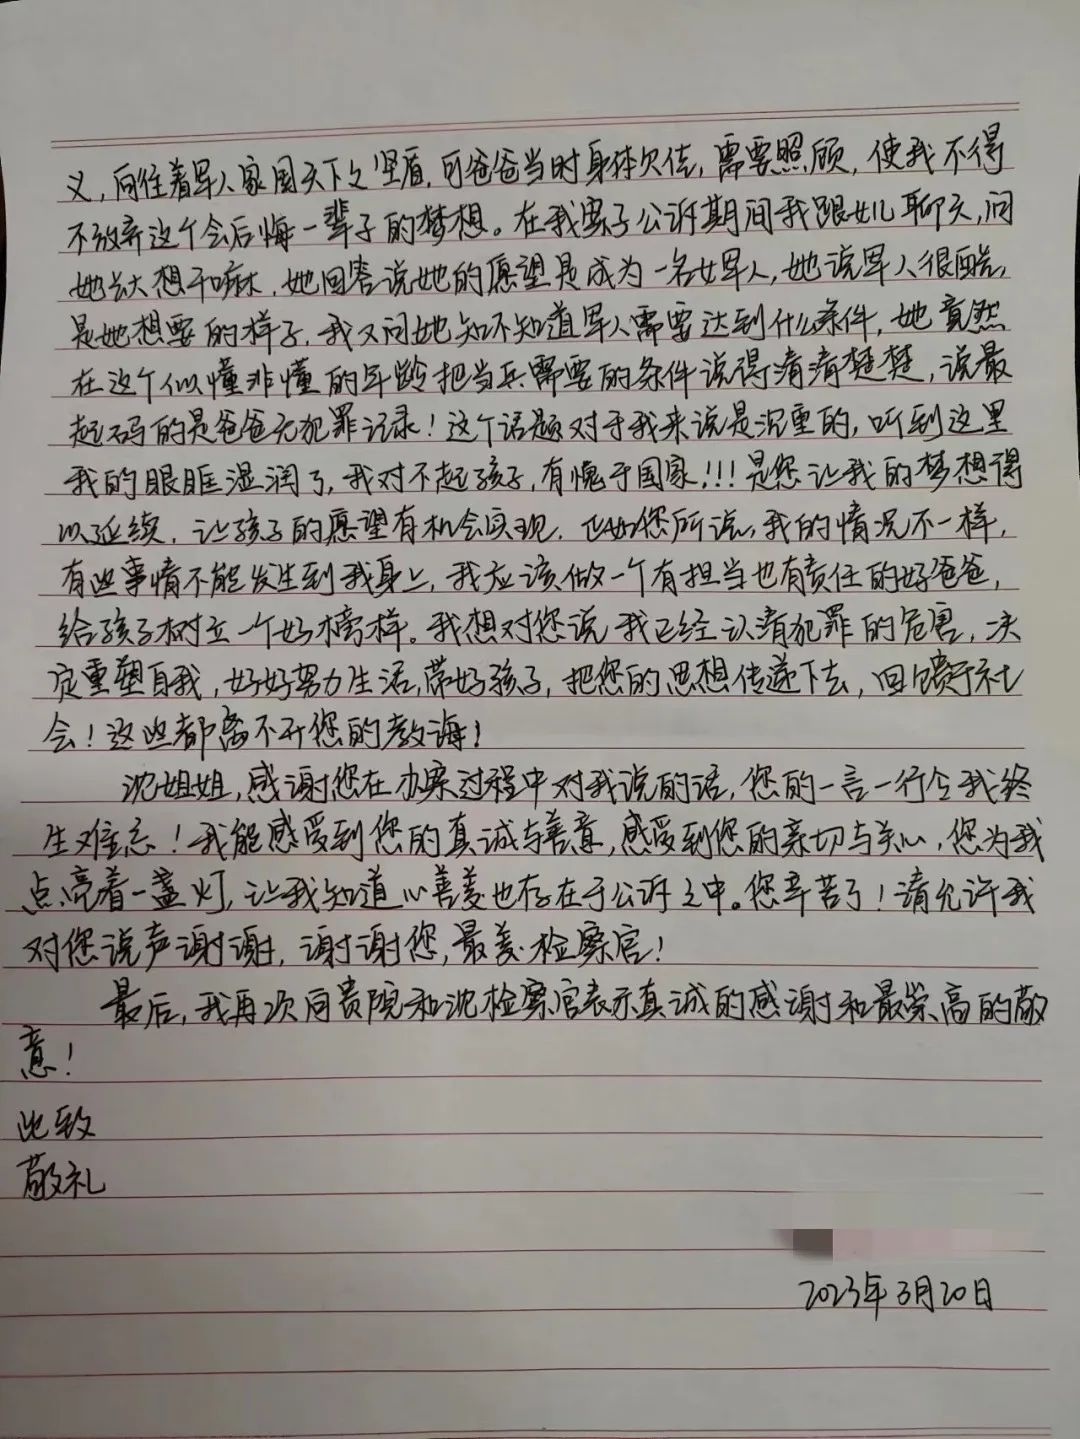 义，向往着军人家国天下之坚盾，可爸爸当时身体欠佳，需要照顾，使我不得
不放弃这个会后悔一辈子的梦想。在我案子公诉期间我跟女儿聊天，问
她长大想干嘛，她回答说她的愿望是成为一名女军人，她说军人很酷，
是她想要的样子，我又问她知不知道军人需要达到什么条件，她竟然
在这个似懂非懂的年龄把当兵需要的条件说得清清楚楚，说最
起码的是爸爸无犯罪记录！这个话题对于我来说是沉重的，听到这里
我的眼眶湿润了，我对不起孩子，有愧于国家！！！是您让我的梦想得
以延续，让孩子的愿望有机会实现，正如您所说，我的情况不一样，
有些事情不能发生到我身上，我应该做一个有担当也有责任的好爸爸，
给孩子树立一个好榜样。我想对您说我已经认清犯罪的危害，决
定重塑自我，好好努力生活，带好孩子，把您的思想传递下去，回馈于社
会！这些都离不开您的教诲！
沈姐姐，感谢您在办案过程中对我说的话，您的一言一行令我终
生难忘！我能感受到您的真诚与善意，感受到您的亲切与关心，您为我
点亮着一盏灯，让我知道心善美也存在于公诉之中。您辛苦了！请允许我
对您说声谢谢，谢谢您，最美检察官！
最后，我再次向贵院和沈检察官表示真诚的感谢和最崇高的敬
意！
此致
敬礼
2023年3月20日